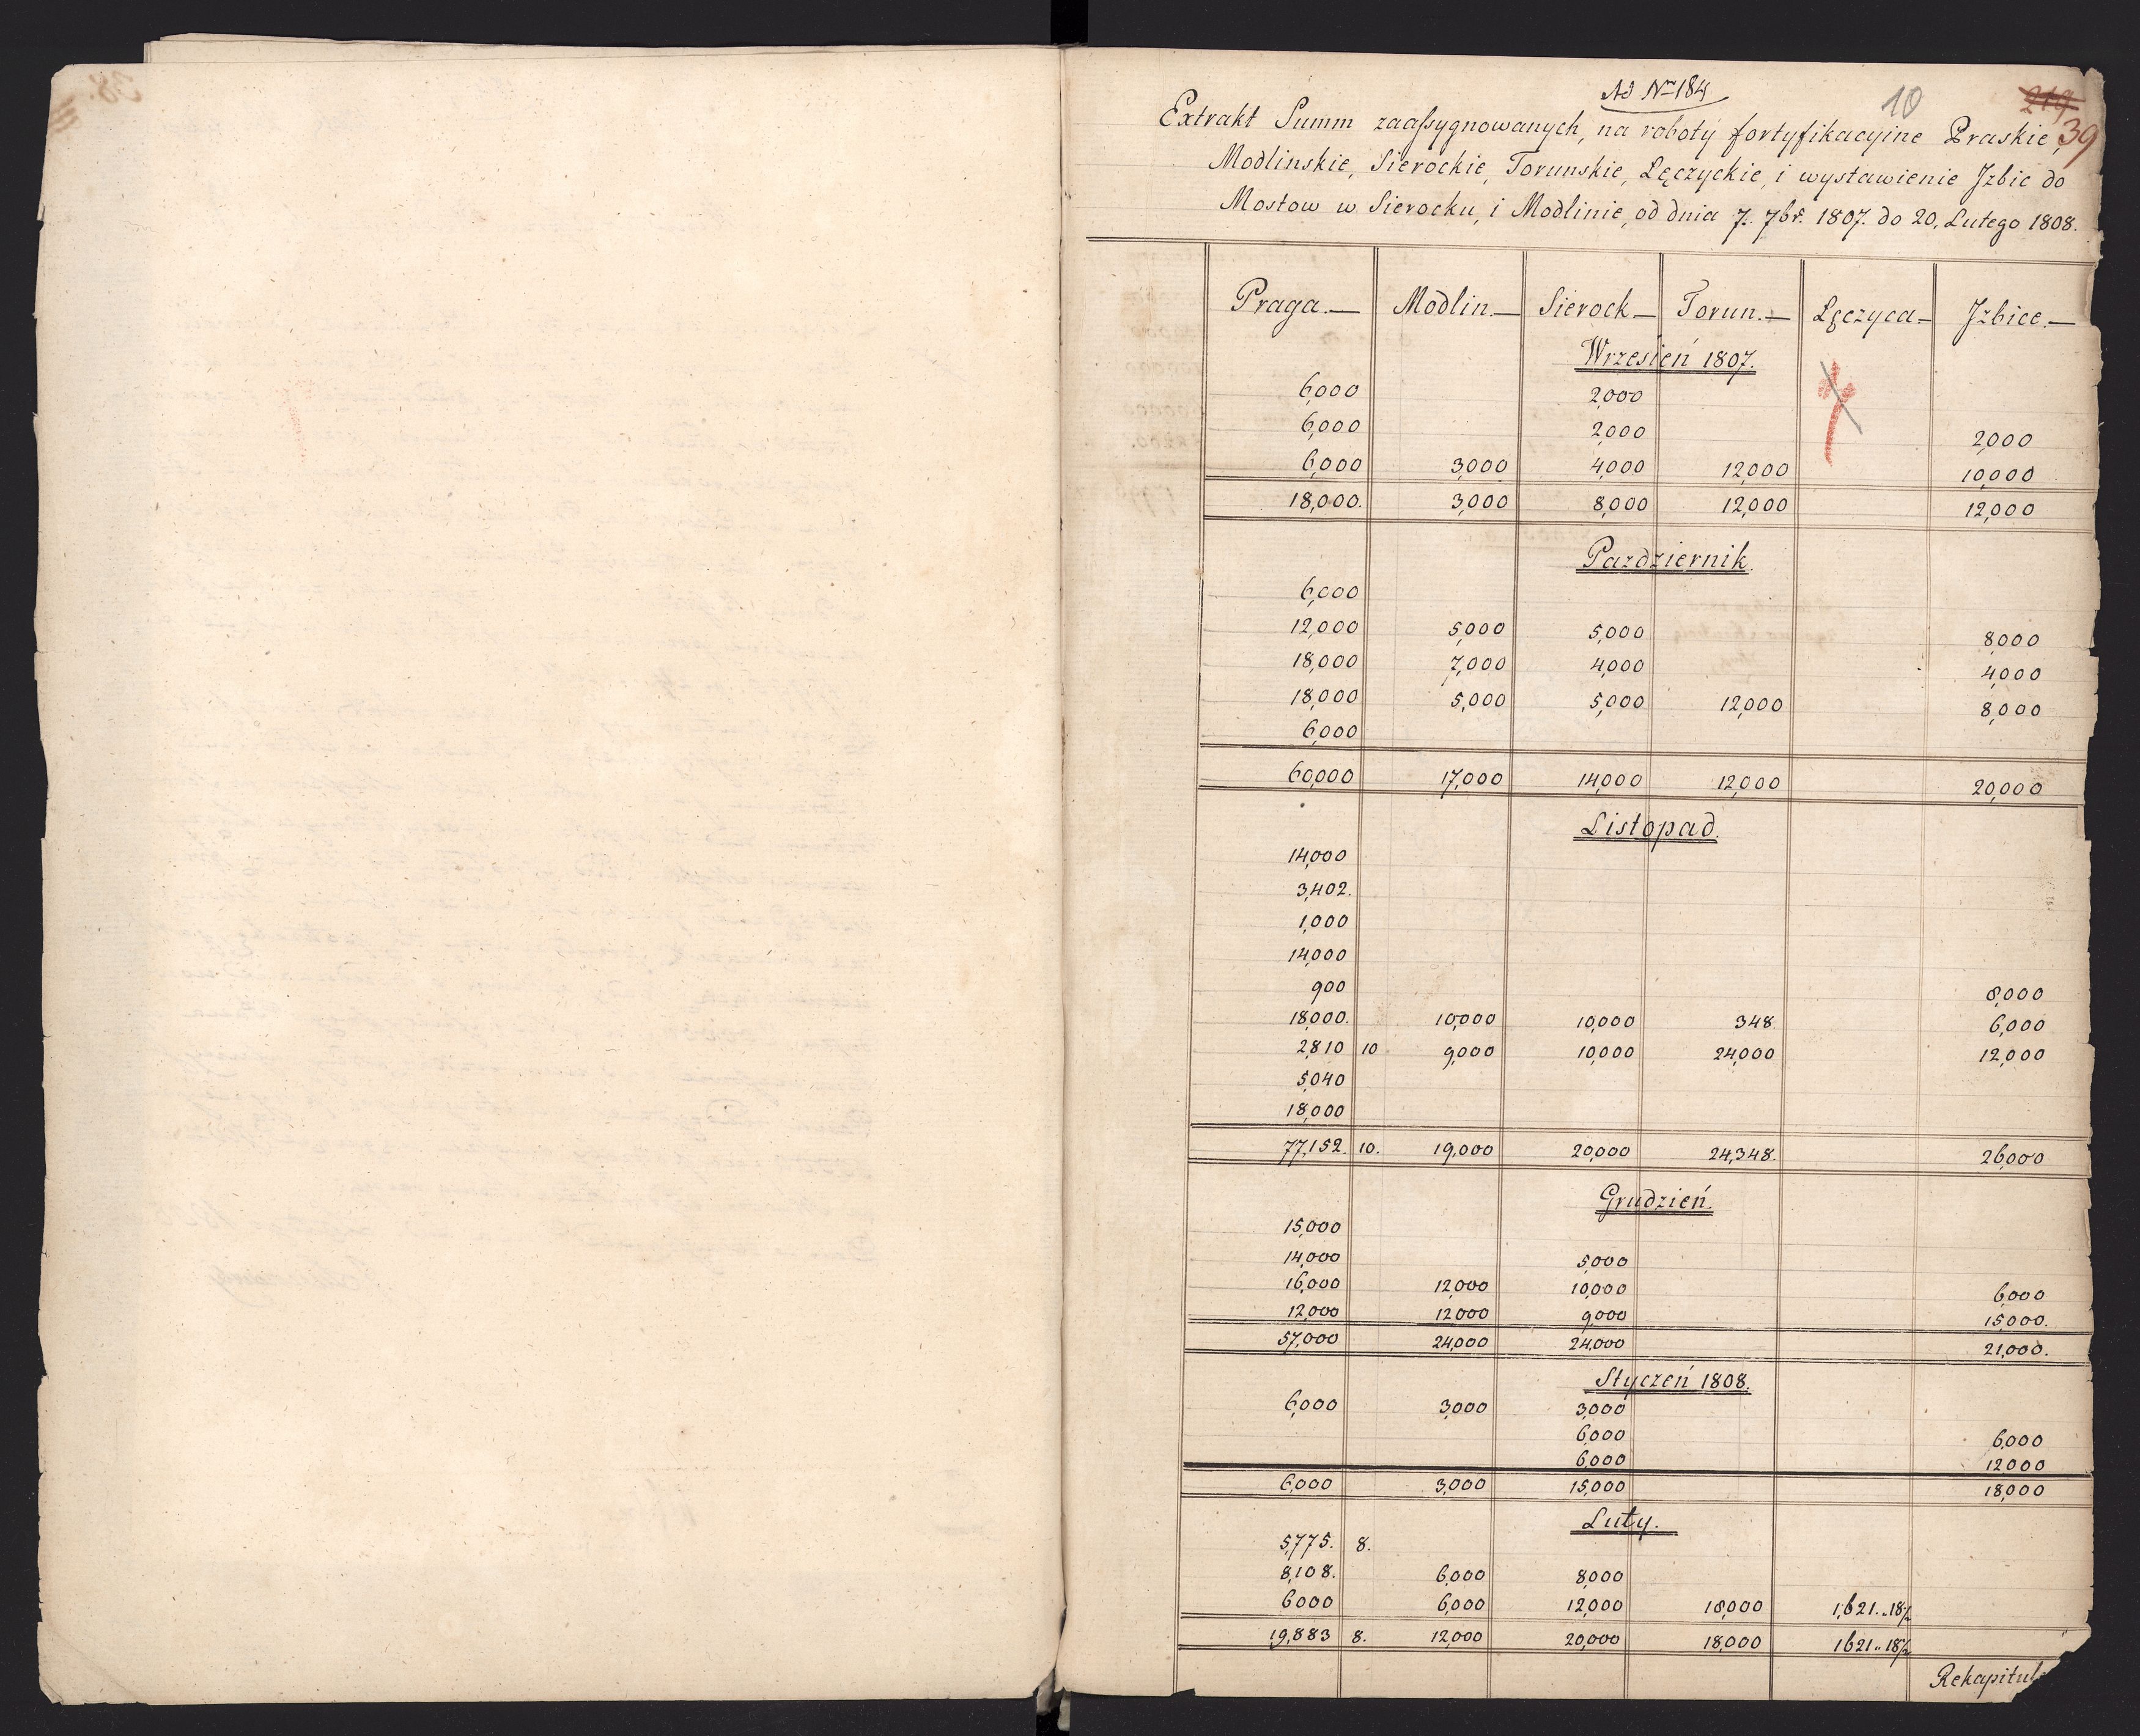 Ad Nro 184
10
219
39
Extrakt Summ zaassygnowanych, na roboty fortyfikacyine Praskie,
Modlinskie, Sierockie, Torunskie, Łęczyckie, i wystawienie Jzbic do
Mostow w Sierocku, i Modlinie, od dnia 7. 7br. 1807. do 20. Lutego 1808.
Praga.— Modlin.— Sierock— Torun.— Łęczyca— Jzbice.—
Wrzesień 1807.
6,000 2,000
6,000 2,000 2,000
6,000 3,000 4,000 12,000 10,000
18,000. 3,000 8,000 12,000 12,000
Pazdziernik.
6,000
12,000 5,000 5,000 8,000
18,000 7,000 4,000 4,000
18,000 5,000 5,000 12,000 8,000
6,000
60,000 17,000 14,000 12,000 20,000
Listopad.
14,000
3,402.
1,000
14,000
900 8,000
18,000. 10,000 10,000 348 6,000
2,810 10 9,000 10,000 24,000 12,000
5,040
18,000
77,152. 10. 19,000 20,000 24,348. 26,000
Grudzień.
15,000
14,000 5,000
16,000 12,000 10,000 6,000
12,000 12,000 9,000 15,000.
57,000 24,000 24,000 21,000.
Styczeń 1808.
6,000 3,000 3,000
6,000 6,000
6,000 12,000
6,000 3,000 15,000 18,000
Luty.
5,775. 8.
8,108. 6,000 8,000
6,000 6,000 12,000 18,000 1,621.. 18 1/2
19,883 8. 12,000 20,000 18,000 1621.. 18 1/2